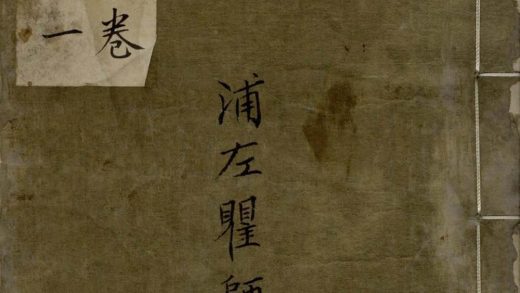 卷一
浦左瞿